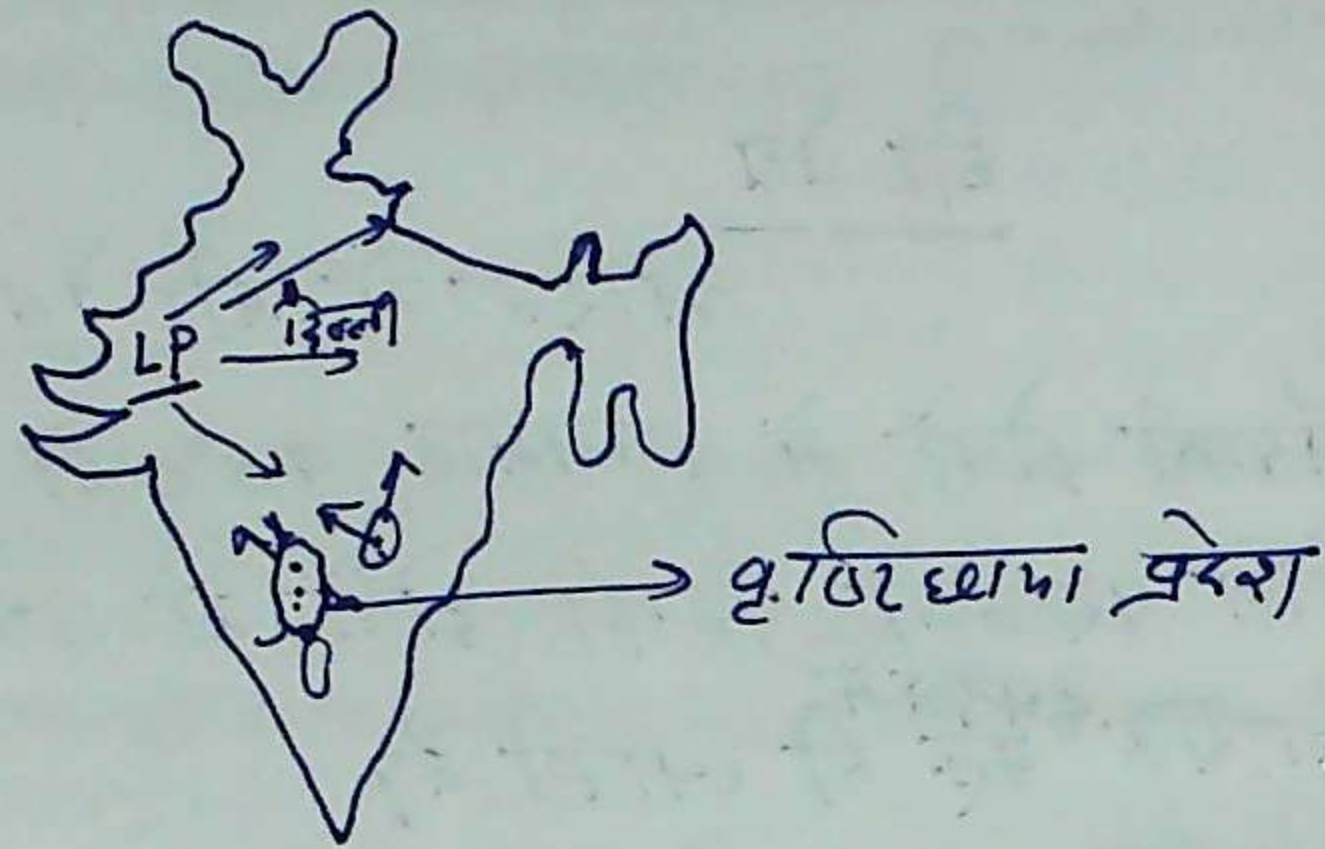 LP
दिल्ली
वृष्टि छाया प्रदेश